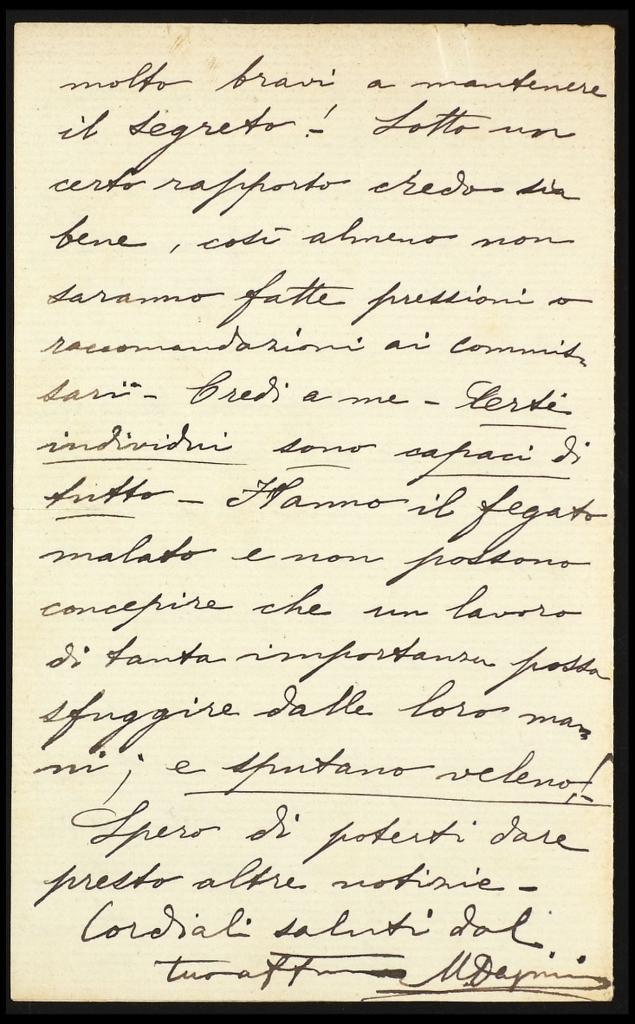 molto bravi a mantenere
il segreto! Sotto un
certo rapporto credo sia
bene, così almeno non
saranno fatte pressioni o
raccomandazioni ai commis-
sari - Credi a me - Certi
individui sono capaci di
tutto - Hanno il fegato
malato e non possono
concepire che un lavoro
di tanta importanza possa
sfuggire dalle loro ma-
ni; e sputano veleno!
Spero di poterti dare
presto altre notizie -
Cordiali saluti dal
tuo aff